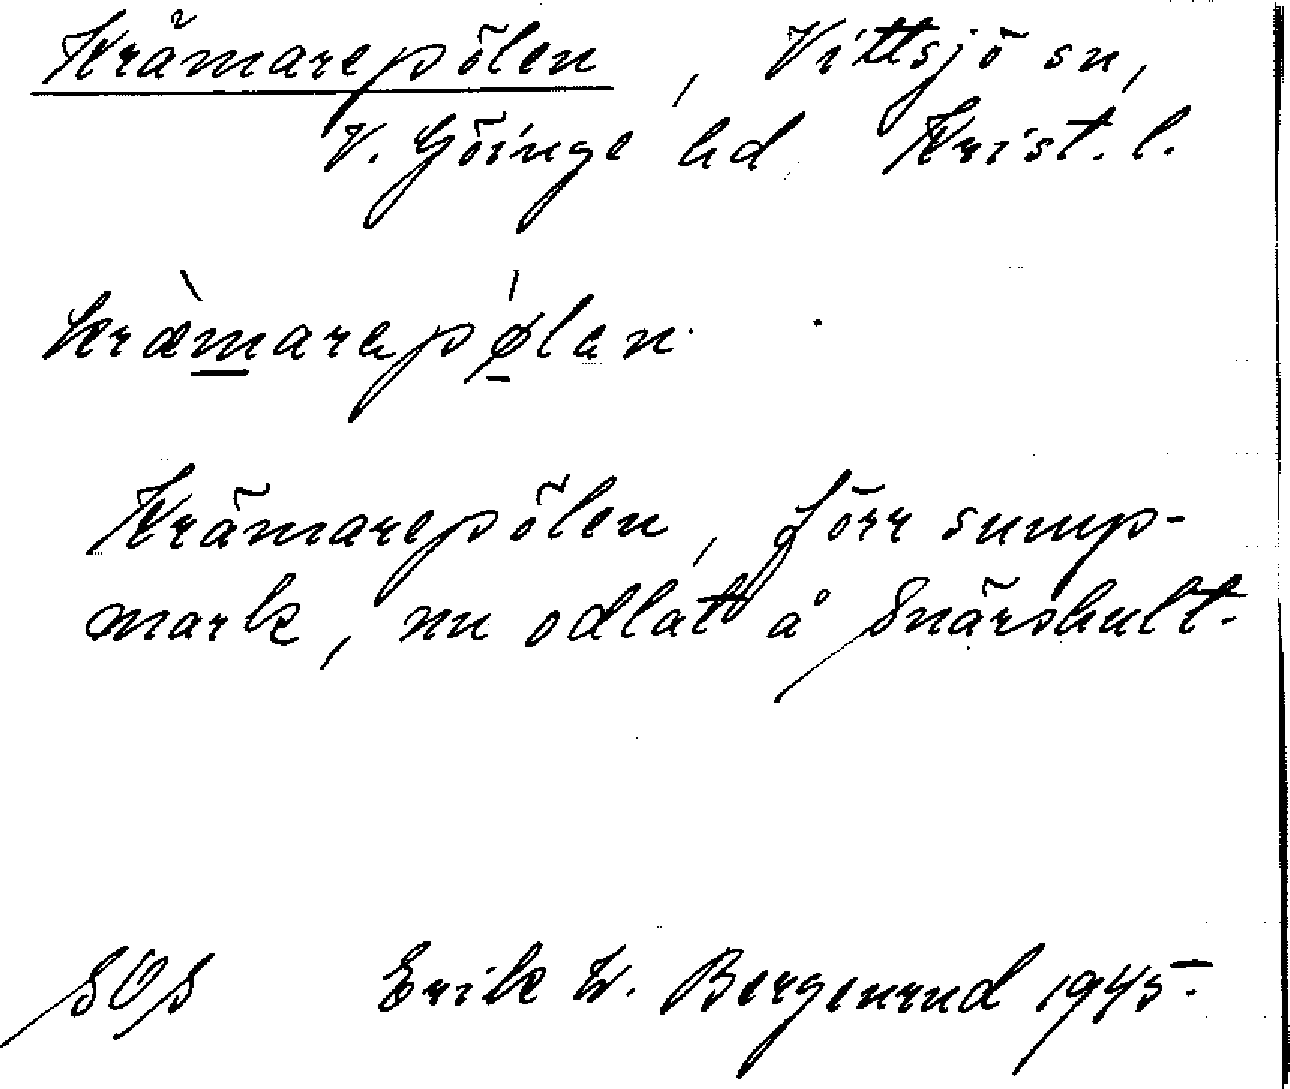 Krämarepölen, Vittsjö sn,
V. Göinge hd Krist. l.
kræ̀marepǿlen.
Krämarepölen, förr sump-
mark, nu odlat å Snärshult.
SOS Erik W. Bergenrud 1945.